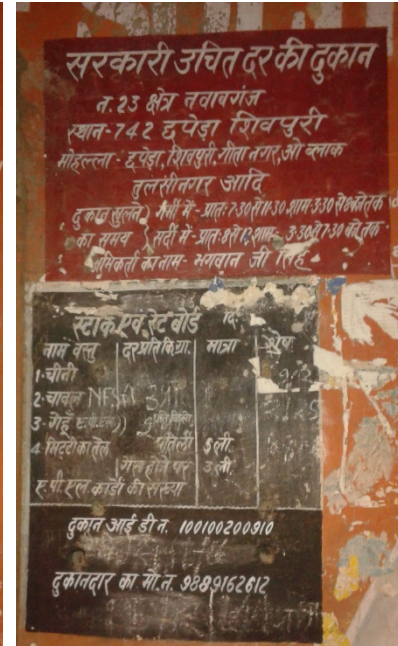 सरकारी उचित दर की दुकान
न. 23 क्षेत्र नवाबगंज
स्थान-742 छपेड़ा शिवपुरी
मोहल्ला - छपेड़ा, शिवपुरी, गीता नगर, ओ ब्लाक
तुलसीनगर आदि
दुकान खुलने } गर्मी में - प्रातः 7-30 से 11-30 शाम 3-30 से बजे तक
का समय } सर्दी में - प्रातः 8 से शाम 3-30 से 7-30 बजे तक
नाम - भगवान जी सिंह
स्टाक एवं रेट बोर्ड दि.
नाम वस्तु दर प्रति कि.ग्रा. मात्रा शेष
1-चीनी
2-चावल NFSA
3-गेहूँ
4-मिट्टी का तेल प्रति ली 5 ली
गैस होने पर 3 ली
ए.पी.एल. कार्डों की संख्या
दुकान आई डी न. 100100200910
दुकानदार का मो.न. 9889162612